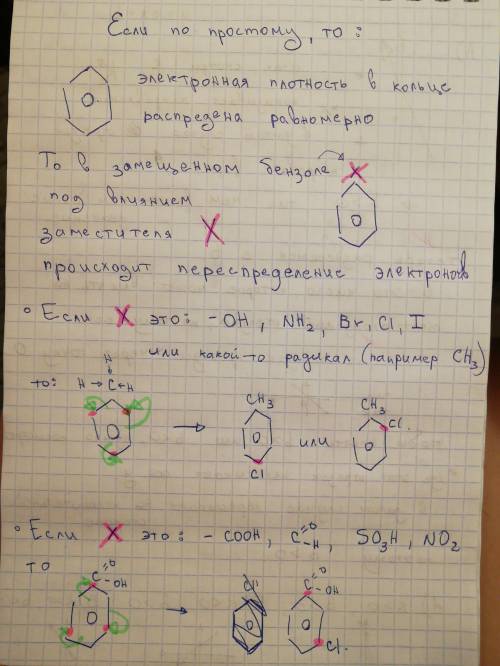 Если по простому, то:
электронная плотность в кольце
распредена равномерно
То в замещенном бензоле X
под влиянием
заместителя X
происходит переспределение электронов
° Если X это: -OH, NH₂, Br, Cl, I
или какой-то радикал (например CH₃)
то:
H
H→C←H
CH₃
Cl
или
CH₃
Cl.
° Если X это: -COOH, C=O-H, SO₃H, NO₂
то
C=O-OH
C=O-OH
Cl.